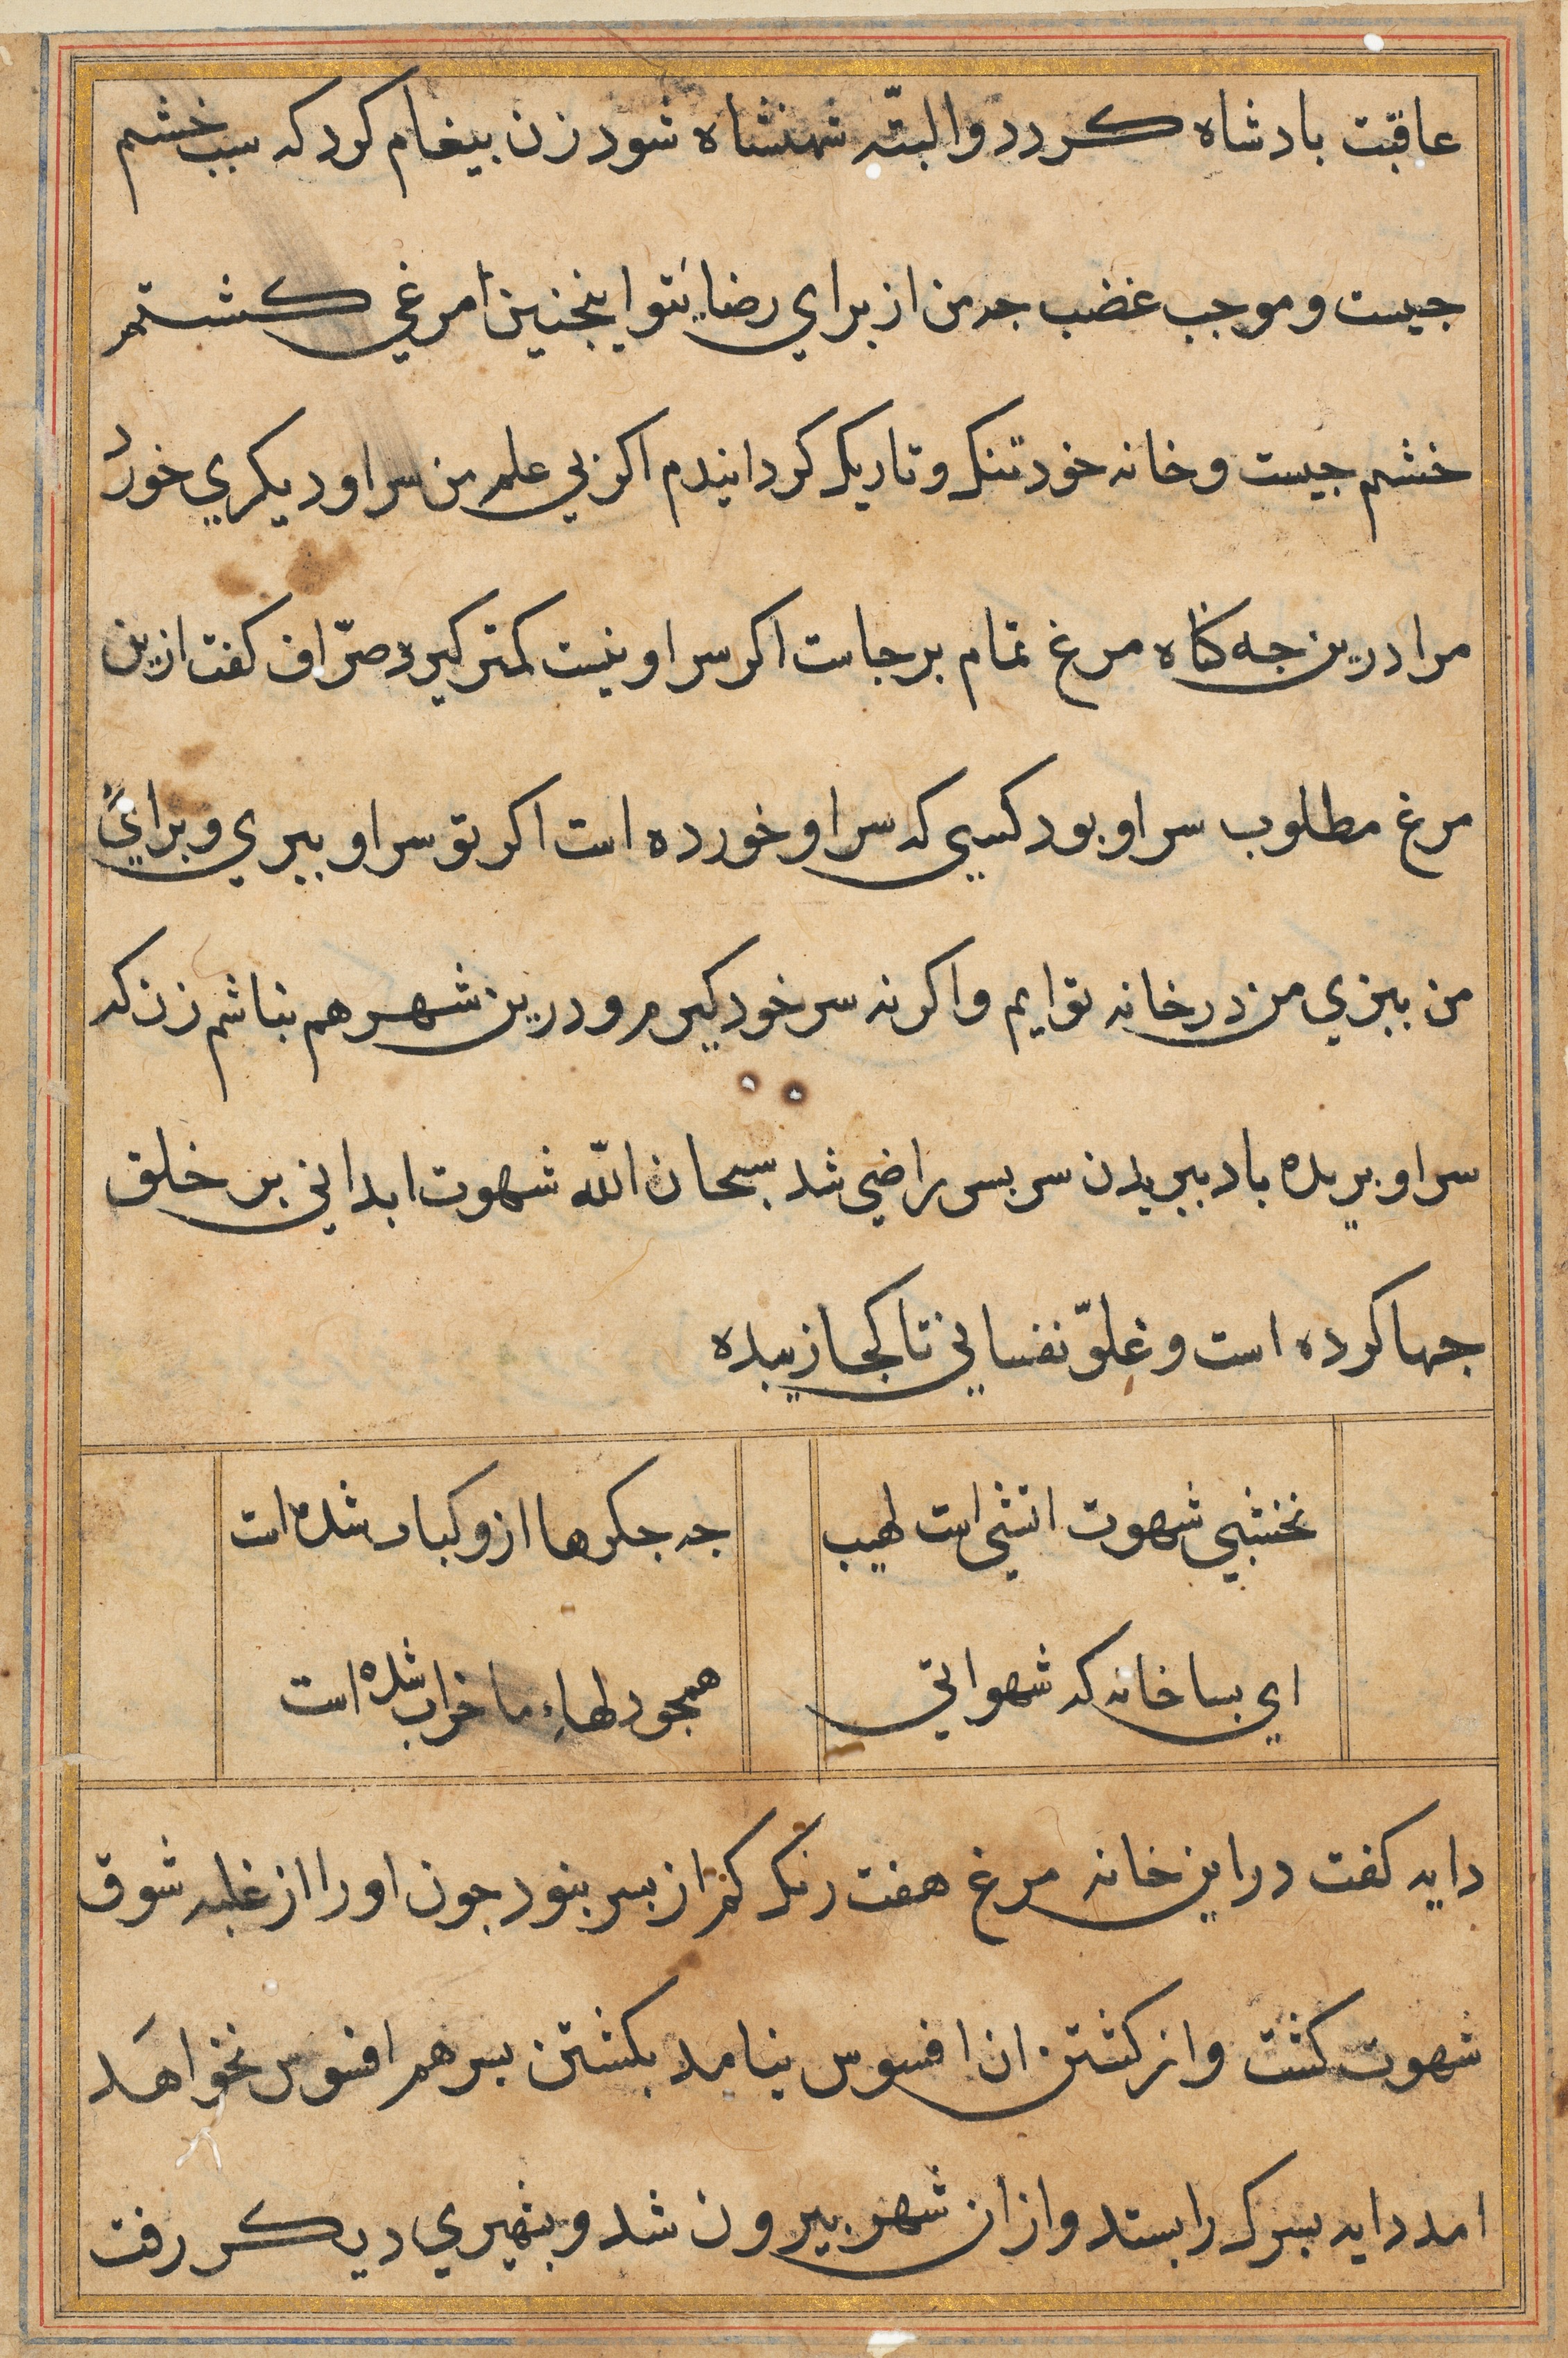 عاقبت بادشاه كردد والبتّه شهنشاه شود زن بيغام كرد كه سبب خشم
جيست و موجب غضب جه من از براي رضاء تو اينجنين مرغي كشتم
خشم جيست و خانه خود تنك و تاريك كردانيدم اكر بي علم من سر او ديكري خورد
مرا درين جه كناه مرغ تمام برجاست اكر سر او نيست كمتر كيرد صرّاف كفت ازين
مرغ مطلوب سر او بود كسي كه سر او خورده است اكر تو سر او ببري و براي
من ببزي من در خانه تو ايم و اكر نه سر خود كيرم و درين شهر هم نباشم زن كه
سر او بريده باد ببريدن سر بسر راضي شد سبحان الله شهوت ابداني بر خلق
جها كرده است و غلوّ نفساني تا كجا رسيده
نخشبي شهوت اتشي است لهيب
جه جكرها ازو كباب شده است
اي بسا خانه كه شهواتي
همجو دلهاء ما خراب شده است
دايه كفت در اين خانه مرغ هفت رنك كم از بسر بنود جون او را از غلبه شوق
شهوت كشت و از كشتن ان افسوس نيامد بكشتن بسر هم افسوس نخواهد
امد دايه بسرك را بستد و از ان شهر بيرون شد و بشهري ديكر رفت